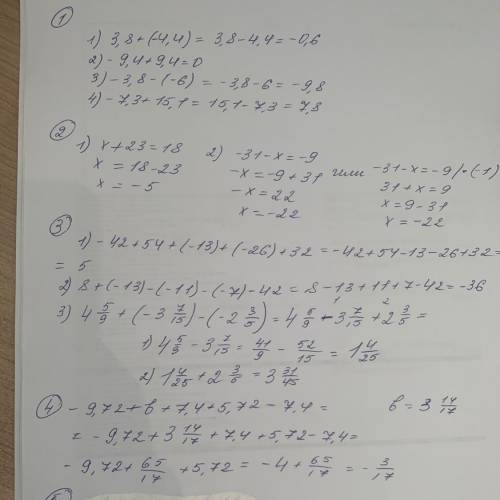 1
1) 3,8 + (-4,4) = 3,8 - 4,4 = -0,6
2) - 9,4 + 9,4 = 0
3) - 3,8 - (-6) = -3,8 - 6 = -9,8
4) - 7,3 + 15,1 = 15,1 - 7,3 = 7,8
2
1) x + 23 = 18 2) -31 - x = -9 или -31 - x = -9 |·(-1)
x = 18 - 23 -x = -9 + 31 31 + x = 9
x = - 5 -x = 22 x = 9 - 31
x = -22 x = -22
3
1) - 42 + 54 + (-13) + (-26) + 32 = -42 + 54 - 13 - 26 + 32 =
= 5
2) 8 + (-13) - (-11) - (-7) - 42 = 8 - 13 + 11 + 7 - 42 = -36
3) 4 5/9 + (-3 7/15) - (-2 3/5) = 4 5/9 - 3 7/15 + 2 3/5 =
1) 4 5/9 - 3 7/15 = 41/9 - 52/15 = 1 4/25
2) 1 4/25 + 2 3/5 = 3 31/45
4 - 9,72 + b + 7,4 + 5,72 - 7,4 = b = 3 14/17
= - 9,72 + 3 14/17 + 7,4 + 5,72 - 7,4 =
- 9,72 + 65/17 + 5,72 = -4 + 65/17 = - 3/17